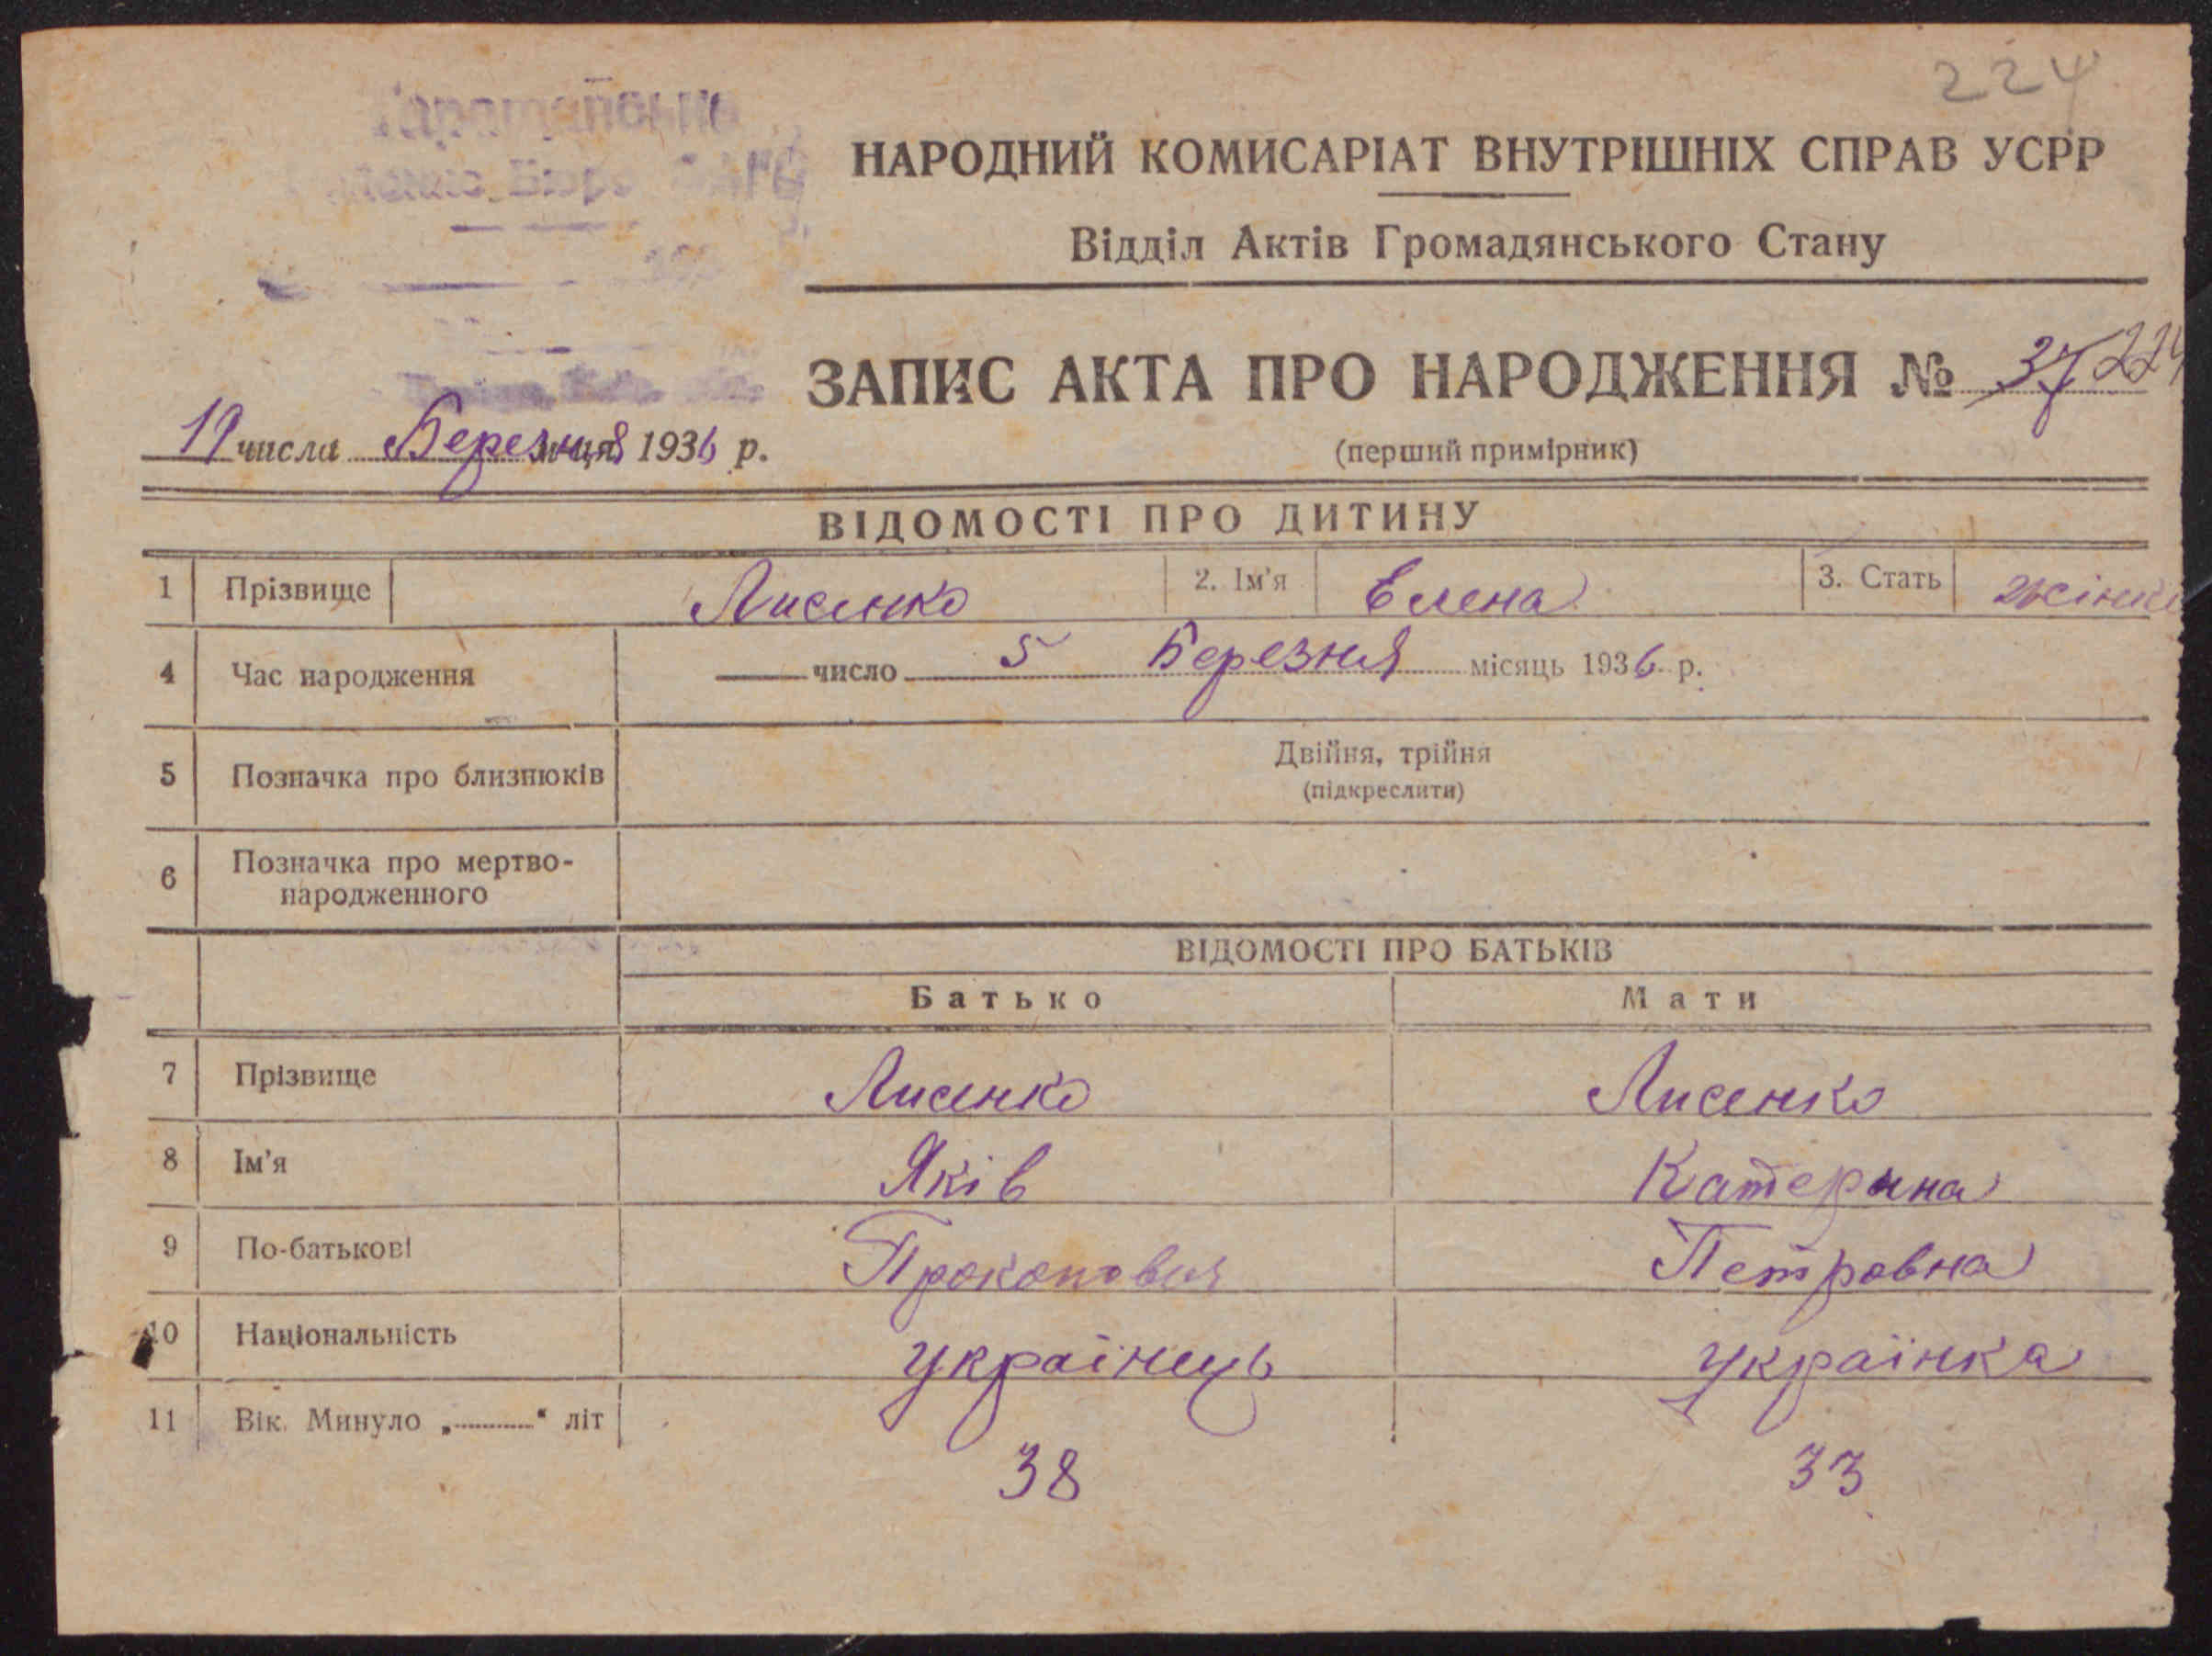 224
НАРОДНИЙ КОМИСАРІАТ ВНУТРІШНІХ СПРАВ УСРР
Відділ Актів Громадянського Стану
ЗАПИС АКТА ПРО НАРОДЖЕННЯ № 37 224
19 числа Березня м-ця 1936 р.
(перший примірник)
ВІДОМОСТІ ПРО ДИТИНУ
1 Прізвище Лисенко 2. Ім'я Елена 3. Стать жіноч
4 Час народження число 5 Березня місяць 1936 р.
5 Позначка про близнюків Двійня, трійня
(підкреслити)
6 Позначка про мертво-
народженного
ВІДОМОСТІ ПРО БАТЬКІВ
Батько Мати
7 Прізвище Лисенко Лисенко
8 Ім'я Яків Катерина
9 По-батькові Прокопович Петровна
10 Національність українець українка
11 Вік. Минуло „ “ літ
38 33